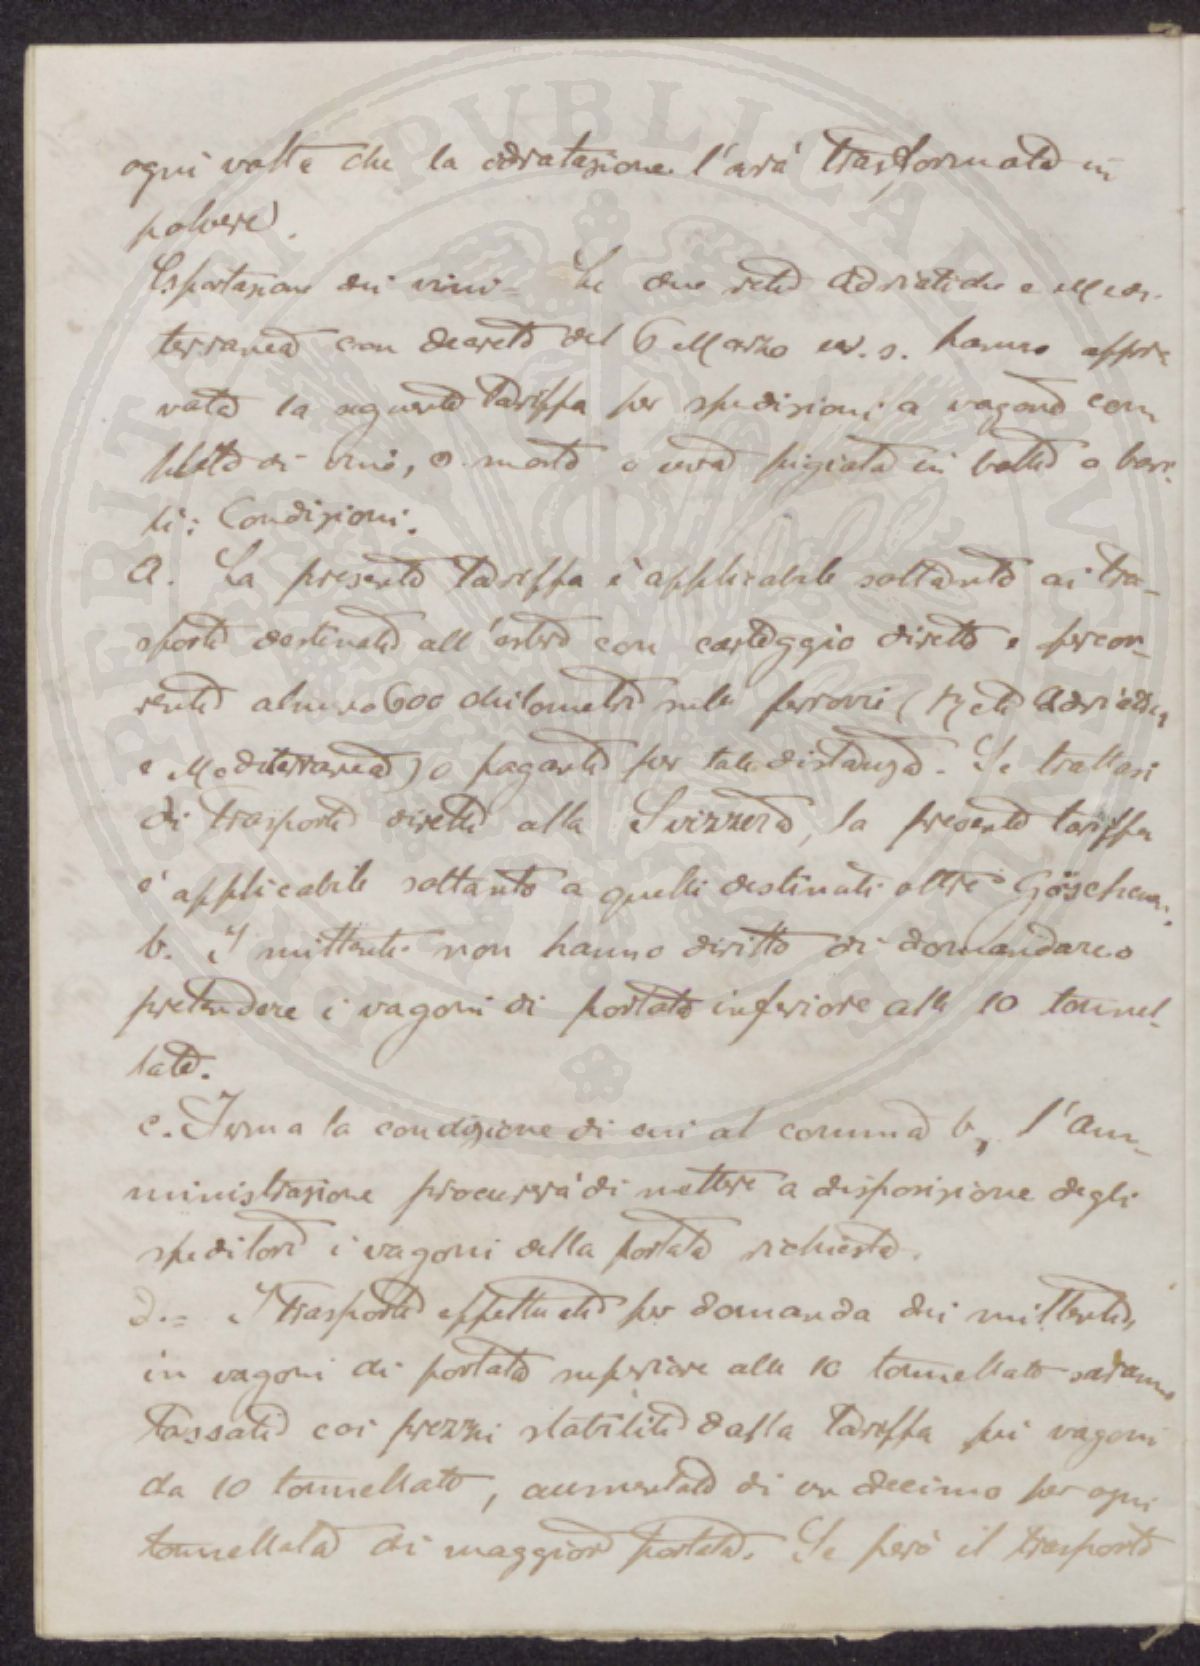 ogni volta che la idratazione l'avrà trasformata in
polvere.
Esportazione dei vini = Le due reti Adriatiche e Medi-
terranea con decreto del 6 Marzo u. s. hanno appro
vata la seguente Tariffa per spedizioni a vagone com
pleto di vino, o mosto o uva pigiata in botti o bari-
li: Condizioni.
A. La presente Tariffa è applicabile soltanto ai tra-
sporti destinati all'estero con carteggio diretto e percor-
renti almeno 600 chilometri sulle ferrovie (Reti Adriatica
e Mediterranea) o paganti per tale distanza. Se trattasi
di trasporti diretti alla Svizzera, la presente tariffa
è applicabile soltanto a quelli destinati oltre Göschenen.
b. I mittenti non hanno diritto di domandare o
pretendere i vagoni di portata inferiore alle 10 tonnel-
late.
c. Ferma la condizione di cui al comma b, l'Am-
ministrazione procurerà di mettere a disposizione degli
speditori i vagoni della portata richiesta.
d.= I trasporti effettuati per domanda dei mittenti,
in vagoni di portata superiore alle 10 tonnellate saranno
tassati coi prezzi stabiliti dalla Tariffa pei vagoni
da 10 tonnellate, aumentati di un decimo per ogni
tonnellata di maggior portata. Se però il trasporto